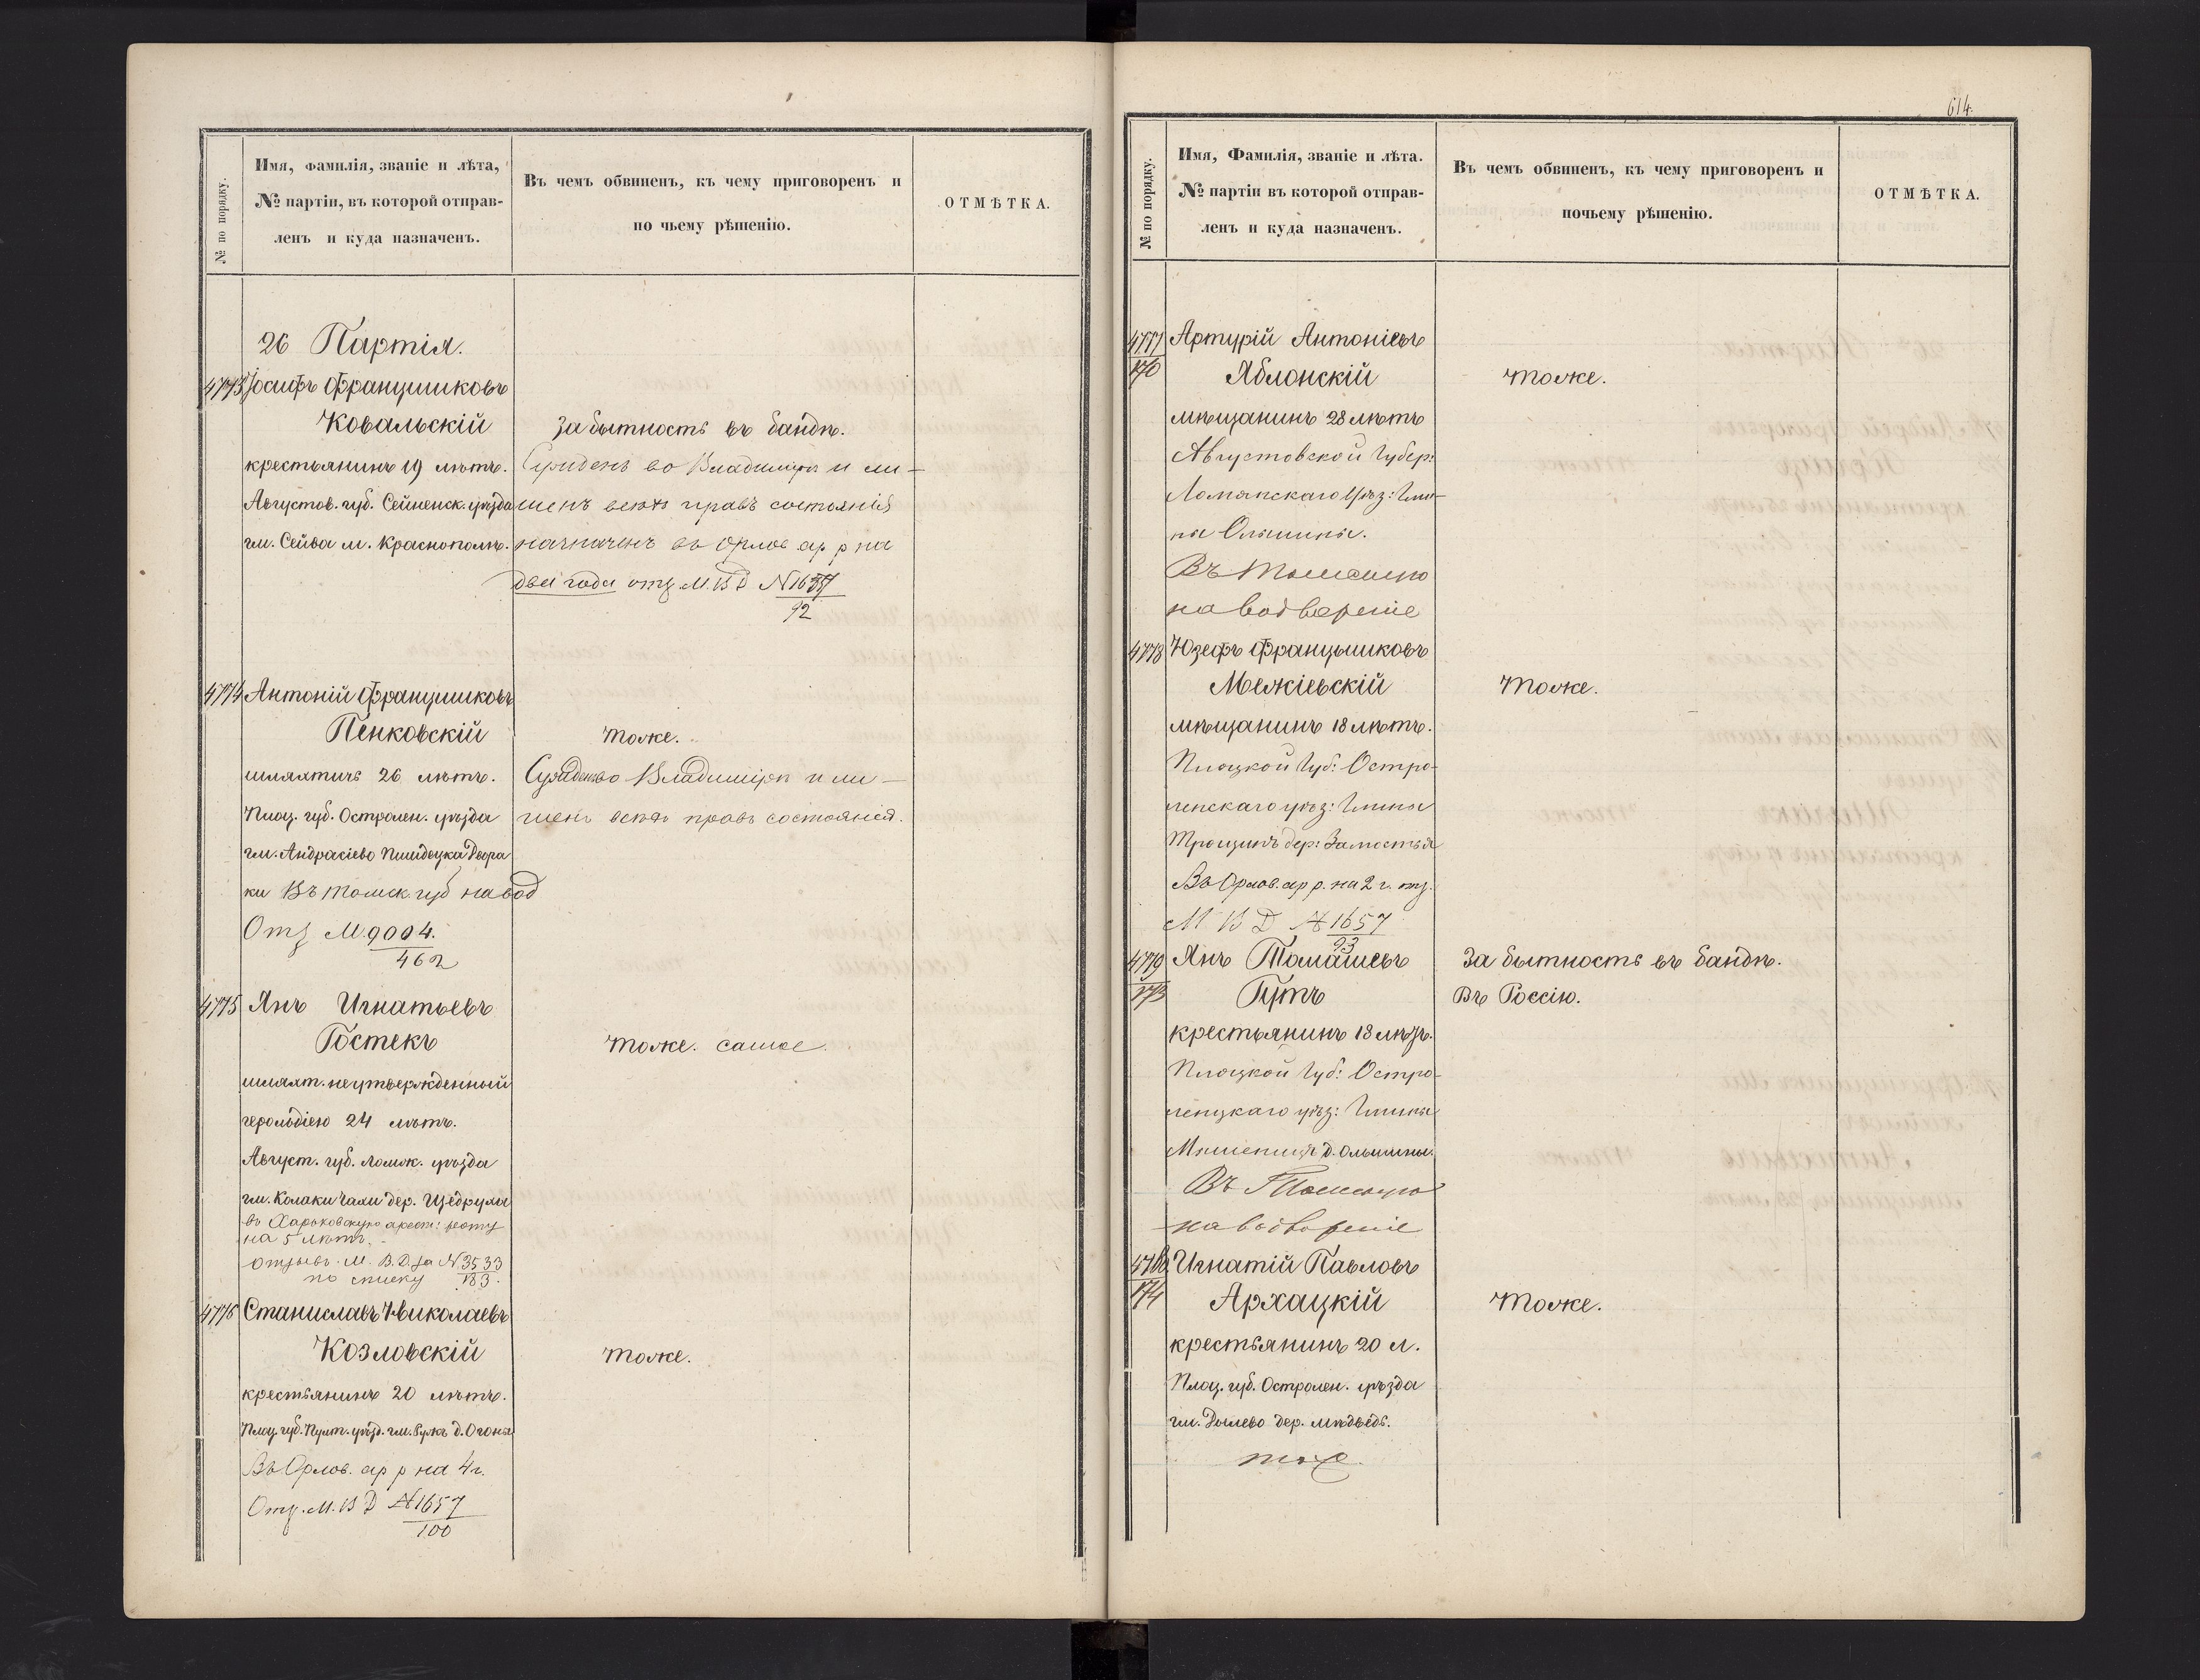 № по порядку.
Имя, фамилія, званіе и лѣта,
№ партіи, въ которой отправ-
ленъ и куда назначенъ.
Въ чемъ обвиненъ, къ чему приговоренъ и
по чьему рѣшенію.
ОТМѢТКА.
26 Партія.
4773 Іосифъ Францишковъ
Ковальскій
За бытность въ бандѣ.
крестьянинъ 19 лѣтъ.
Сужденъ во Владимірѣ и ли-
Августов. губ. Сейненск. уѣзда
шенъ всѣхъ правъ состоянія
гм. Сейва м. Краснополь.
назначенъ въ Орлов ар р на
два года отз. М. В Д N 1657
92
4774 Антоній Францишковъ
Пенковскій
тоже.
шляхтичъ 26 лѣтъ.
Сужденъ во Владимірѣ и ли-
Плоц. губ. Остролен. уѣзда
шенъ всѣхъ правъ состоянія.
гм. Андрасіево Двора
ки Въ Томск. губ на вод
Отз М. 9004.
462
4775 Янъ Игнатьевъ
Гостекъ
тоже. самое.
шляхт. неутвержденный
герольдіею 24 лѣтъ.
Август. губ. Ломж. уѣзда
гм. Колаки дер. Щедрухи
въ Харьковскую арест: роту
на 5 лѣтъ.
отзывъ. М. В. Д. за N 3533
по списку 183.
4776 Станиславъ Николаевъ
Козловскій
тоже.
крестьянинъ 20 лѣтъ.
Плоц. губ. Пулт. уѣзд. гм. д.
Въ Орлов. ар р на 4 г.
Отз. М. В Д N 1657
100
614.
№ по порядку.
Имя, Фамилія, званіе и лѣта.
№ партіи въ которой отправ-
ленъ и куда назначенъ.
Въ чемъ обвиненъ, къ чему приговоренъ и
почьему рѣшенію.
ОТМѢТКА.
4777 Артурій Антоніевъ
170 Яблонскій
тоже.
мѣщанинъ 28 лѣтъ
Августовской Губер:
Ломжпскаго Уѣз: Гми-
ны Ольшины.
Въ Томскую
на водвореніе
4778 Юзефъ Францышковъ
Межіевскій
тоже.
мѣщанинъ 18 лѣтъ.
Плоцкой Губ: Остро-
ленскаго уѣз: Гмины
Трощинъ дер: Замостья
Въ Орлов. ар р. на 2 г. отз.
М В Д N 1657
93
4779 Янъ Томашевъ
За бытность въ бандѣ.
173 Гутъ
Въ Россію.
крестьянинъ 18 лѣтъ.
Плоцкой Губ: Остро-
ленцкаго уѣз: Гмины
д. Ольшины.
Въ Томскую
на водвореніе
4780 Игнатій Павловъ
174 Архацкій
тоже.
крестьянинъ 20 л.
Плоц. губ. Остролен. уѣзда
гм. Дылево дер. Мѣдвѣдь.
тоже.